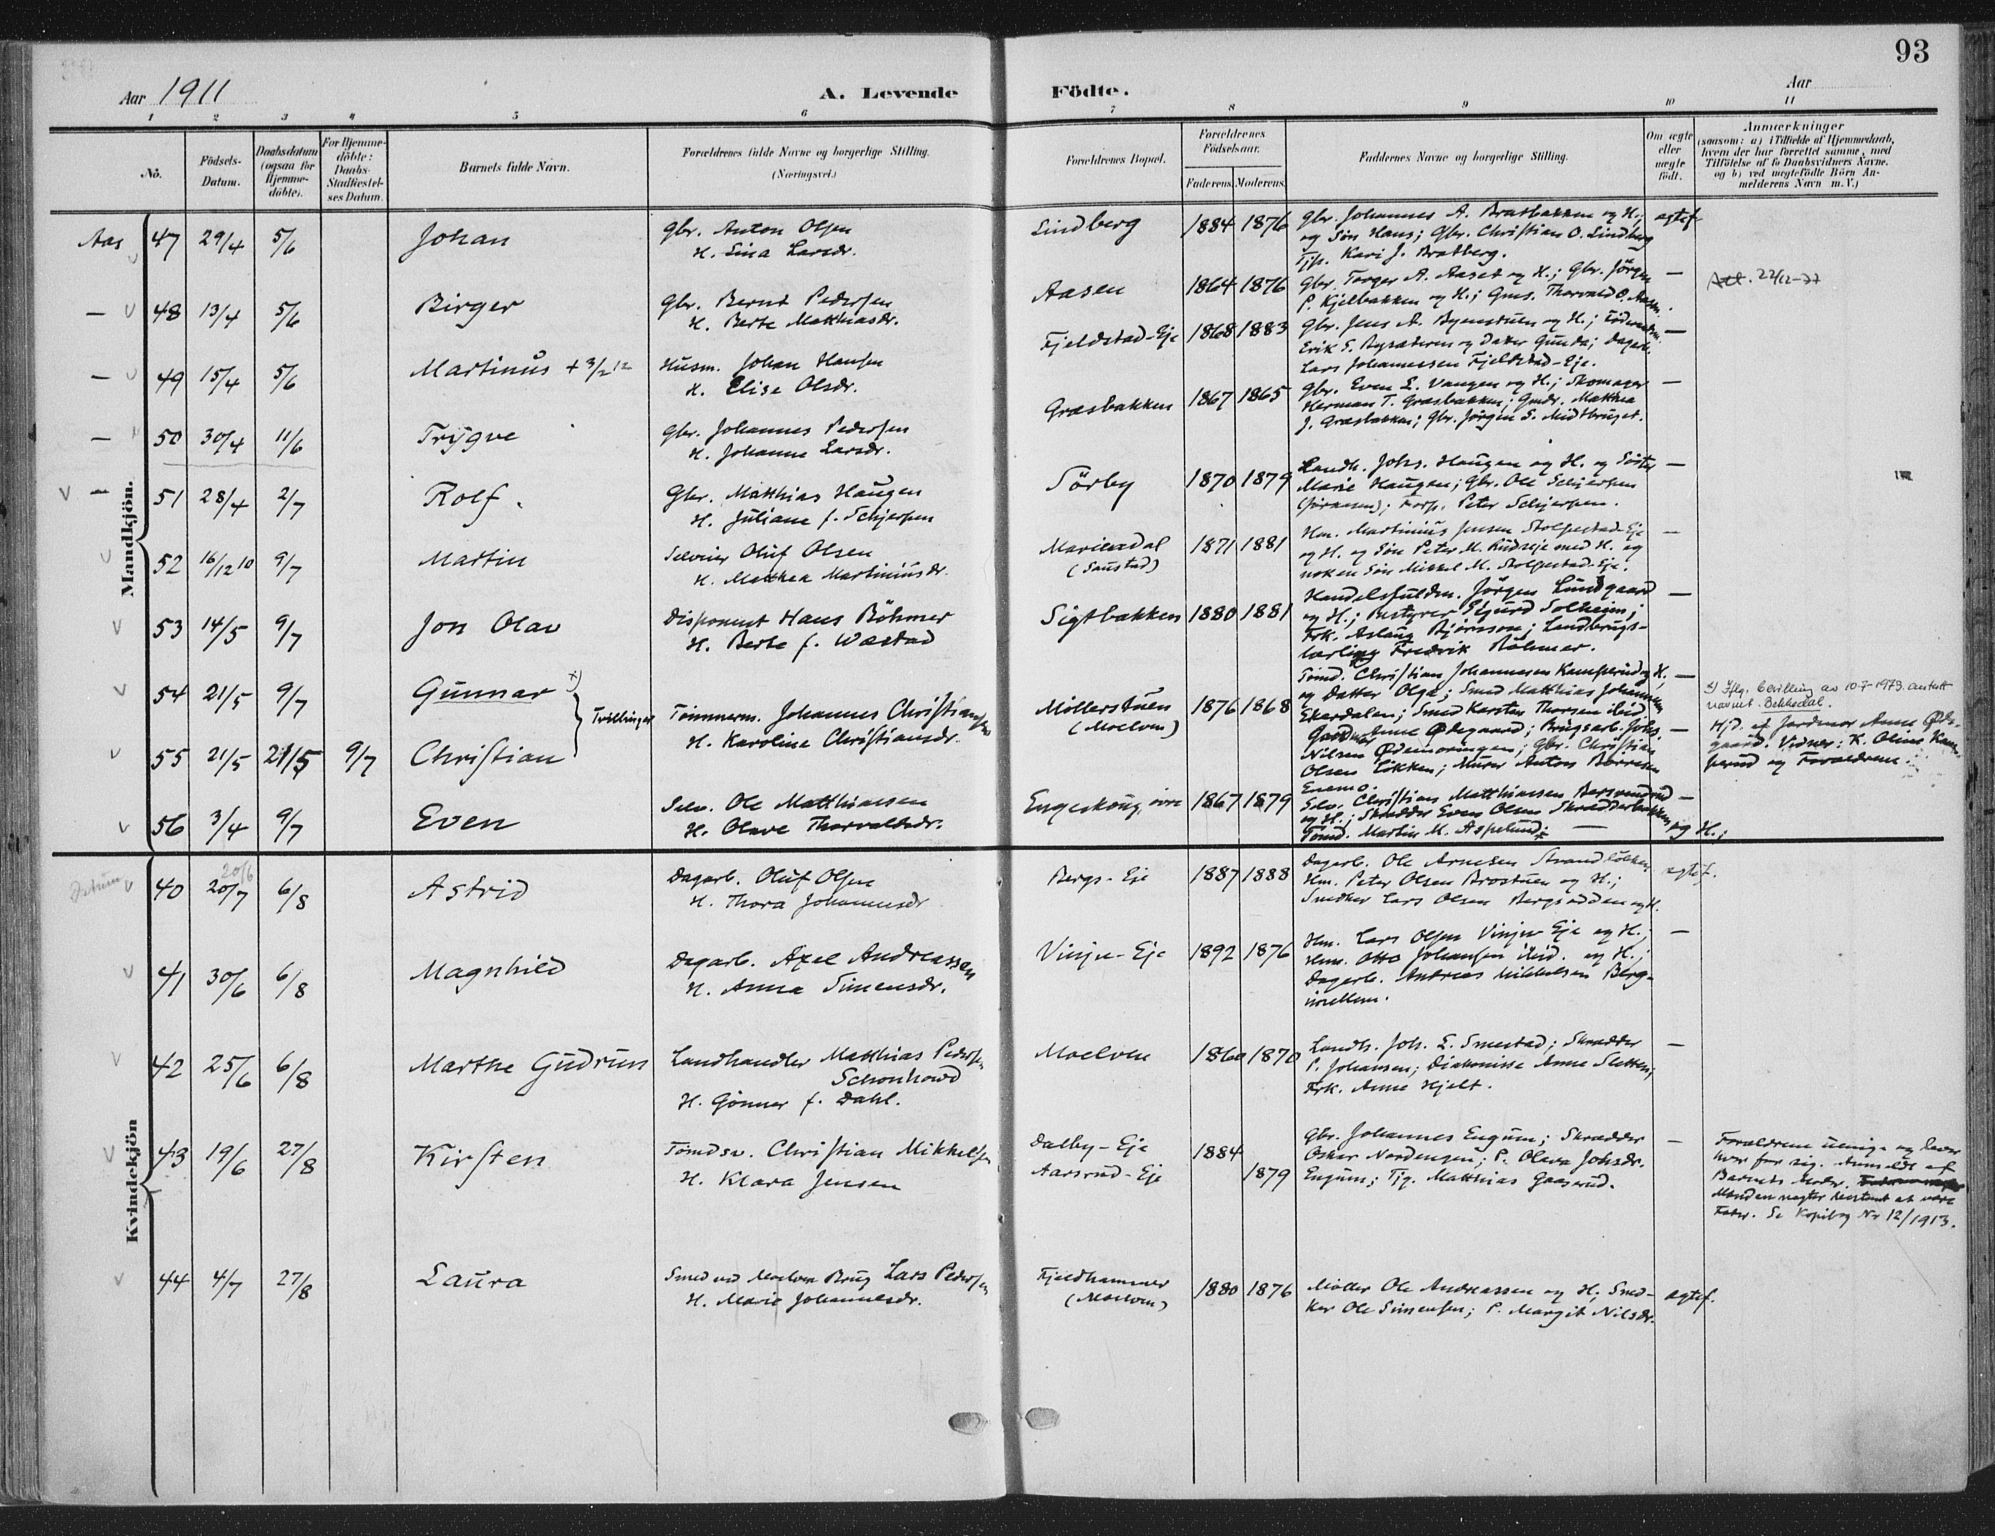 93
Aar 1911
A. Levende Födte.
Aar
1 2 3 4 5 6 7 8 9 10 11
No.
Födsels-Datum.
Daabsdatum (ogsaa for Hjemme-döbte).
For Hjemme-döbte: Daabs-Stadfæstel-ses Datum.
Barnets fulde Navn.
Forældrenes fulde Navne og borgerlige Stilling. (Næringsvei.)
Forældrenes Bopæl.
Forældrenes Födselsaar.
Faderens. Moderens.
Faddernes Navne og borgerlige Stilling.
Om ægte eller uægte födt.
Anmærkninger
(saasom: a) i Tilfælde af Hjemmedaab, hvem der har forrettet samme, med Tilföielse af to Daabsvidners Navne. og b) ved uægtefödte Börn An-melderens Navn m. V.)
Mandkjön.
Aas 47 29/4 5/6 Johan
Gbr. Anton Olsen
H. Lina Larsdr.
Lindberg 1884 1876
Gbr. Johannes A. Bratbakken og H.;
og Søn Hans; Gbr. Christian O. Lindberg
Tjp. Kari J. Bratberg.
ægtef.
— 48 13/4 5/6 Birger
Gbr. Bernt Pedersen
H. Berte Matthiasdr.
Aasen 1864 1876
Gbr. Torger A. Aaset og H.; Gbr. Jörgen
P. Kjelbakken og H.; Gms. Thorvald O. Aasen.
—
Att. 22/12-77
— 49 15/4 5/6 Martinus + 3/2 12
Husm. Johan Hansen
H. Elise Olsdr.
Fjeldstad-Eje 1868 1883
Gbr. Jens A. Byenstuen og H.;
Erik E. og Datter Gunda; Dagarb.
Lars Johannessen Fjeldstad-Eje.
—
— 50 30/4 11/6 Trygve
Gbr. Johannes Pedersen
H. Johanne Larsdr.
Græsbakken 1867 1865
Gbr. Even L. Vangen og H.; Skomager
Herman T. Græsbakken; Gmdr. Matthea
J. Græsbakken; Gbr. Jörgen S. Midtbruget.
—
— 51 28/4 2/7 Rolf.
Gbr. Matthias Haugen
H. Juliane f. Schjerpen
Sörby 1870 1879
Landh. Johs. Haugen og H. og Søster
Marie Haugen; Gbr. Ole Schjerpen
Forp. Peter Schjerpen.
—
52 16/12 10 9/7 Martin
Selveier Oluf Olsen
H. Matthea Martiniusdr.
Mariendal
(Saustad)
1871 1881
Hm. Martinius Jensen Stolpestad-Eje
og H. og Søn Peter M. Rudseje med H. og
nok en Søn Mikkel M. Stolpestad-Eje.
—
53 14/5 9/7 Jon Olav
Disponent Hans Böhmer
H. Berte f. Wæstad
Sigtbakken 1880 1881
Handelsfuldm. Jörgen Lundgaard
og H.; Bestyrer Sigurd Solheim;
Frk. Aslaug Bjørnson; Landbrugs-
lærling Fredrik Böhmer.
—
54 21/5 9/7 Gunnar x)
Tvillinger
Tömmerm. Johannes Christiansen
H. Karoline Christiansdr.
Möllerstuen
(Moelven)
1876 1868
Tömd. Christian Johannesen Kamperud og H.,
og Datter Olga; Smed Matthias Johannesen
Ekerdalen; Smed Karsten Thorsen ibid
—
x) Iflg. bevilling av 10-7-1973. antatt
navnet Bekkedal.
55 21/5 21/5 9/7 Christian
Jordmor Anne Ødegaard; Brugsarb. Johs.
Nilsen Ødemoringen; Gbr. Christian
Olsen Løkken; Murer Anton Borresen
Enemo.
—
Hjd. af Jordmor Anne Øde-
gaard. Vidner: K. Oline Kam-
perud og Forældrene.
56 3/4 9/7 Even
Selv. Ole Matthiassen
H. Olave Thorvaldsdr.
Engeskoug, övre 1867 1879
Selv. Christian Matthiassen Bersvendrud
og H.; Skrædder Even Olsen Skrædderbakken og H.;
Tömd. Martin M. Aspelund
—
Kvindekjön
Datum 40 20/7 20/6 6/8 Astrid
Dagarb. Oluf Olsen
H. Thora Johannesdr
Bergs-Eje 1887 1888
Dagarb. Ole Arnesen Strandløkken
Hm. Peter Olsen Brostuen og H.;
Snedker Lars Olsen Bergsodden og H.
ægtef.
41 30/6 6/8 Magnhild
Dagarb. Axel Andreassen
H. Anna Simensdr.
Vinju-Eje 1892 1876
Hm. Lars Olsen Vinju Eje og H.;
Hm. Otto Johansen ibid. og H.;
Dagarb. Andreas Mikkelsen Berg-
—
42 25/6 6/8 Marthe Gudrun
Landhandler Matthias Pedersen
Schonhowd
H. Gönner f. Dahl.
Moelven 1860 1870
Landh. Joh. L. Smestad; Skrædder
P. Johansen; Diakonisse Anne Sletten;
Frk. Anne Hjelt.
—
43 19/6 27/8 Kirsten
Tömdsv. Christian Mikkelsen
H. Klara Jensen
Dalby-Eje
Aarsrud-Eje
1884
1879
Gbr. Johannes Engum; Skrædder
Oskar Nordengen; P. Olava Johsdr.
Engum; Tjg. Matthias Gaaserud.
—
Forældrene uenige og lever
hver for sig. Anmeldt af
Barnets Moder.
Manden nægter bestemt at være
Fader. Se Kopibog Nr 12/1913.
44 4/7 27/8 Laura
Smed ved Moelven Brug Lars Pedersen
H. Marie Johannesdr.
Fjeldhammer
(Moelven)
1880 1876
Møller Ole Andreassen og H; Sned-
ker Ole Simensen; P. Margit Nilsdr.
ægtef.